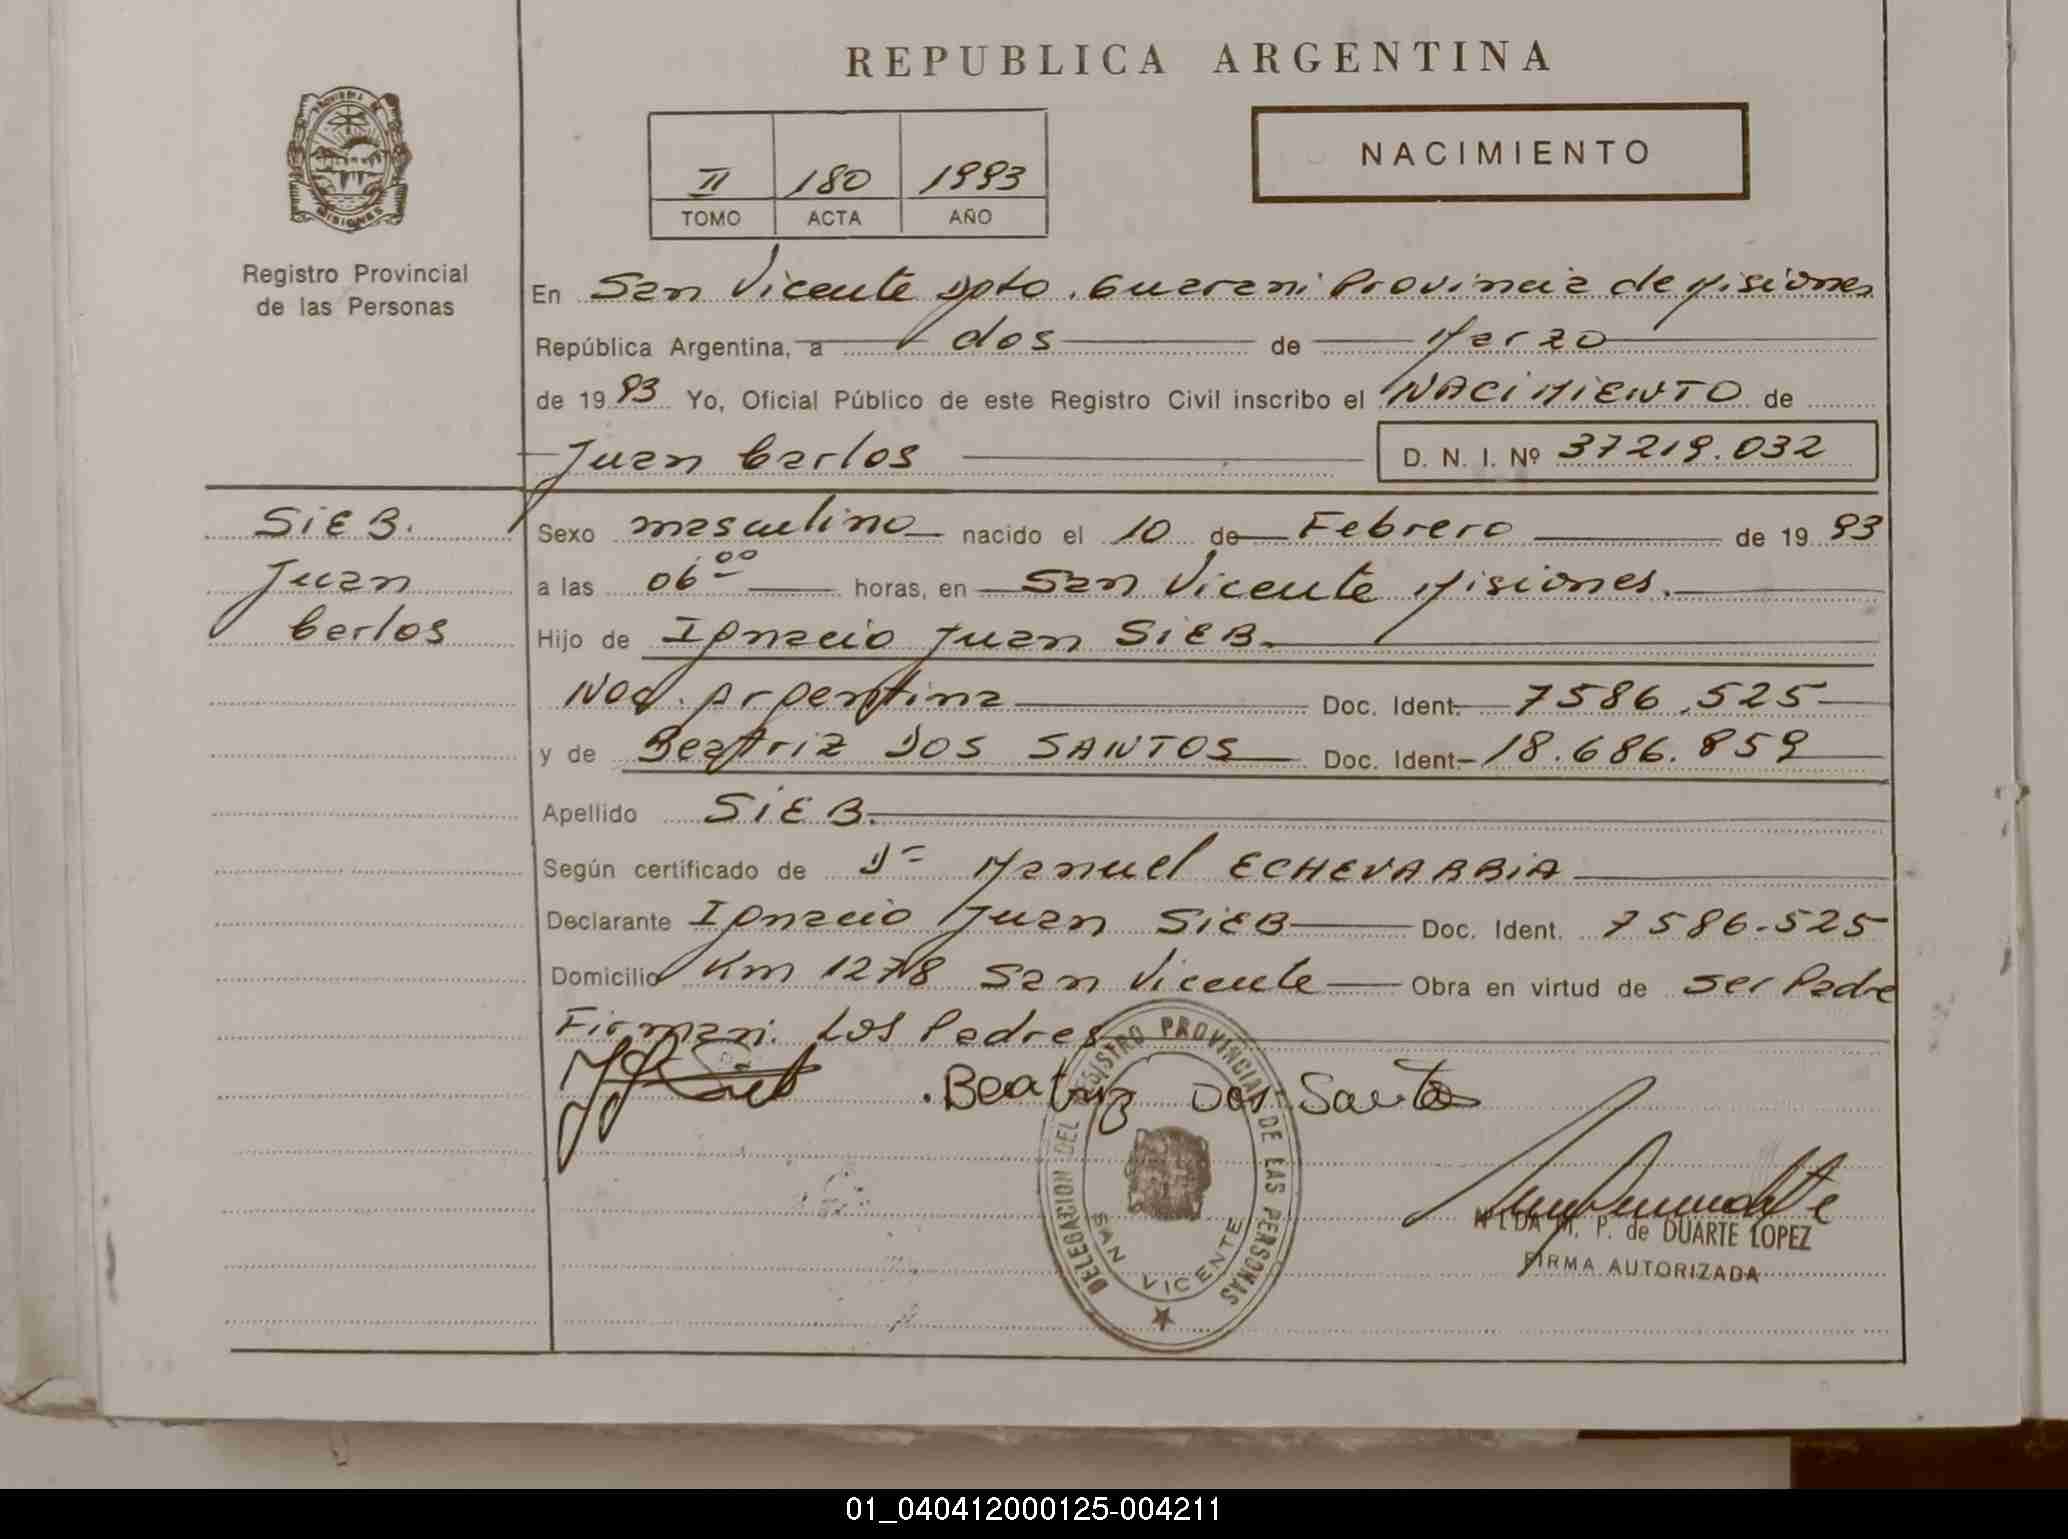 REPUBLICA ARGENTINA
NACIMIENTO
II 180 1993
TOMO ACTA AÑO
PROVINCIA DE
MISIONES
Registro Provincial
de las Personas
En San Vicente Dpto. Guarani Provincia de Misiones
República Argentina, a dos de Marzo
de 1993 Yo, Oficial Público de este Registro Civil inscribo el NACIMIENTO de
Juan Carlos D. N. I. Nº 37219.032
SIEB.
Juan
Carlos
Sexo masculino nacido el 10 de Febrero de 1993
a las 06 00 horas, en San Vicente Misiones.
Hijo de Ignacio Juan SIEB.
Nac. Argentina Doc. Ident. 7586.525
y de Beatriz DOS SANTOS Doc. Ident. 18.686.859
Apellido SIEB.
Según certificado de Dr Manuel ECHEVARRIA
Declarante Ignacio Juan SIEB Doc. Ident. 7586.525
Domicilio Km 1278 San Vicente Obra en virtud de ser Padre
Firman: Los Padres
Beatriz Dos Santos
DELEGACION DEL REGISTRO PROVINCIAL DE LAS PERSONAS
SAN VICENTE
NILDA M. P. de DUARTE LOPEZ
FIRMA AUTORIZADA
01_040412000125-004211